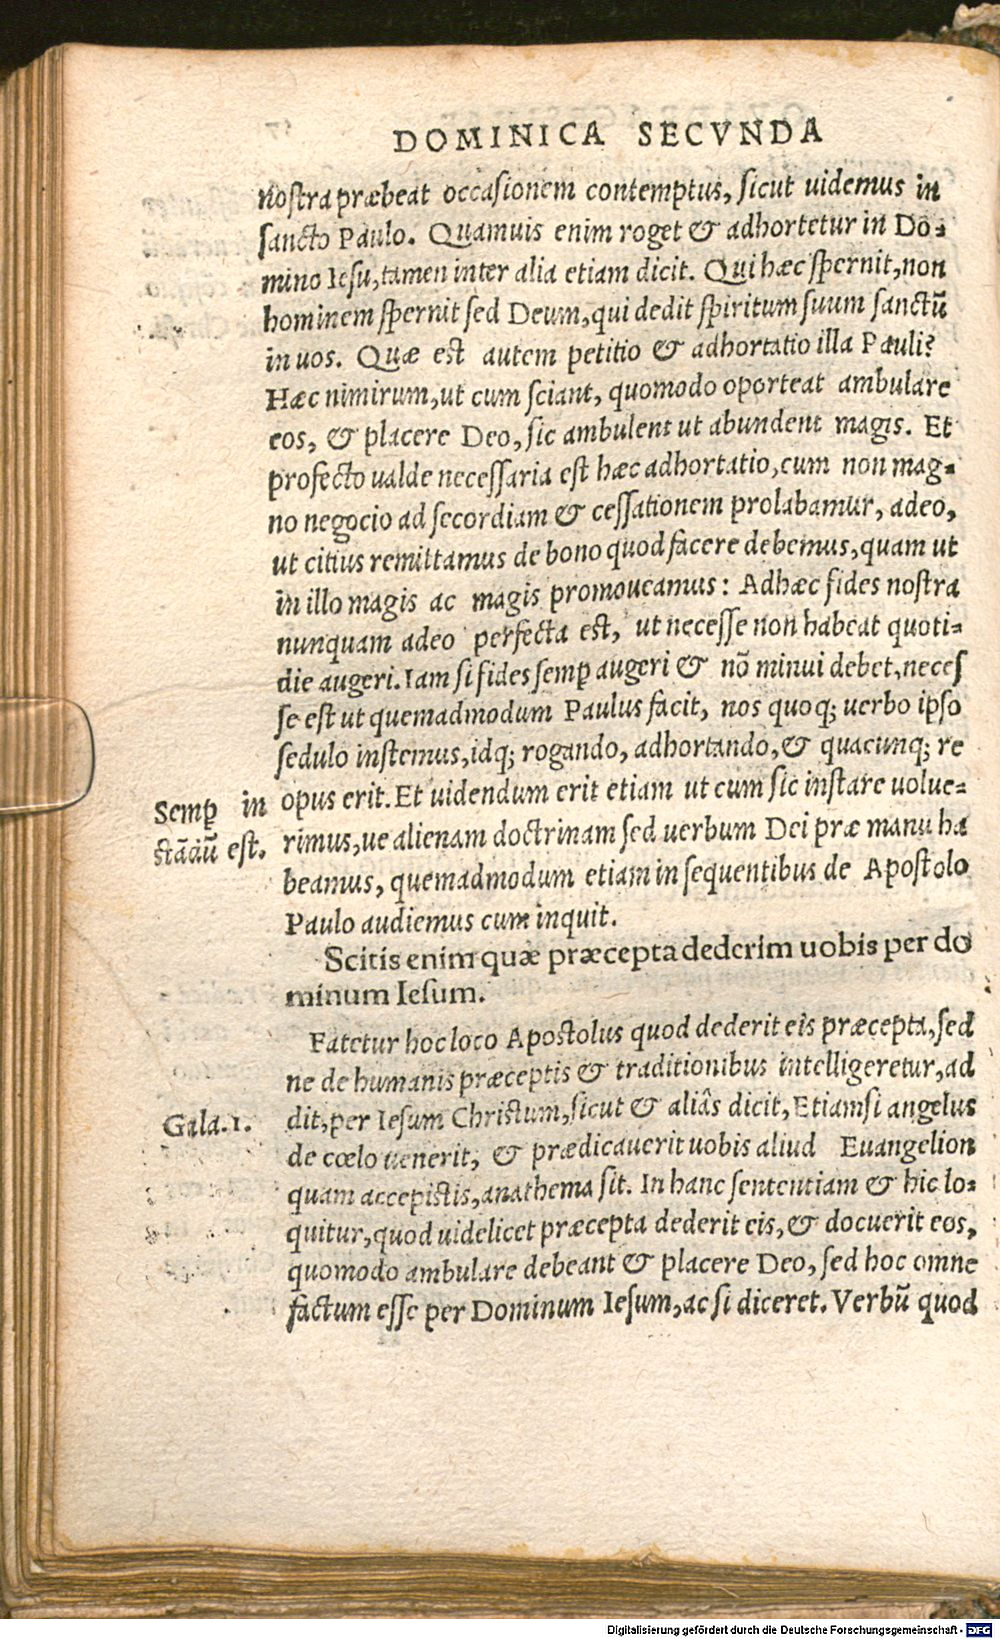 DOMINICA SECVNDA
nostra præbeat occasionem contemptus, sicut uidemus in
sancto Paulo. Quamuis enim roget & adhortetur in Do-
mino Iesu, tamen inter alia etiam dicit. Qui hæc spernit, non
hominem spernit sed Deum, qui dedit spiritum suum sanctū
in uos. Quæ est autem petitio & adhortatio illa Pauli?
Hæc nimirum, ut cum sciant, quomodo oporteat ambulare
eos, & placere Deo, sic ambulent ut abundent magis. Et
profecto ualde necessaria est hæc adhortatio, cum non mag-
no negocio ad secordiam & cessationem prolabamur, adeo,
ut citius remittamus de bono quod facere debemus, quam ut
in illo magis ac magis promoueamus: Adhæc fides nostra
nunquam adeo perfecta est, ut necesse non habeat quoti-
die augeri. Iam si fides semꝑ augeri & nō minui debet, neces
se est ut quemadmodum Paulus facit, nos quoq; uerbo ipso
sedulo instemus, idq; rogando, adhortando, & quacunq; re
opus erit. Et uidendum erit etiam ut cum sic instare uolue-
rimus, ne alienam doctrinam sed uerbum Dei præ manu ha
beamus, quemadmodum etiam in sequentibus de Apostolo
Paulo audiemus cum inquit.
Semꝑ in
stādū est.
Scitis enim quæ præcepta dederim uobis per do
minum Iesum.
Fatetur hoc loco Apostolus quod dederit eis præcepta, sed
ne de humanis præceptis & traditionibus intelligeretur, ad
dit, per Iesum Christum, sicut & aliâs dicit, Etiamsi angelus
de cœlo uenerit, & prædicauerit uobis aliud Euangelion
quam accepistis, anathema sit. In hanc sententiam & hic lo-
quitur, quod uidelicet præcepta dederit eis, & docuerit eos,
quomodo ambulare debeant & placere Deo, sed hoc omne
factum esse per Dominum Iesum, ac si diceret. Verbū quod
Gala.1.
Digitalisierung gefördert durch die Deutsche Forschungsgemeinschaft - DFG